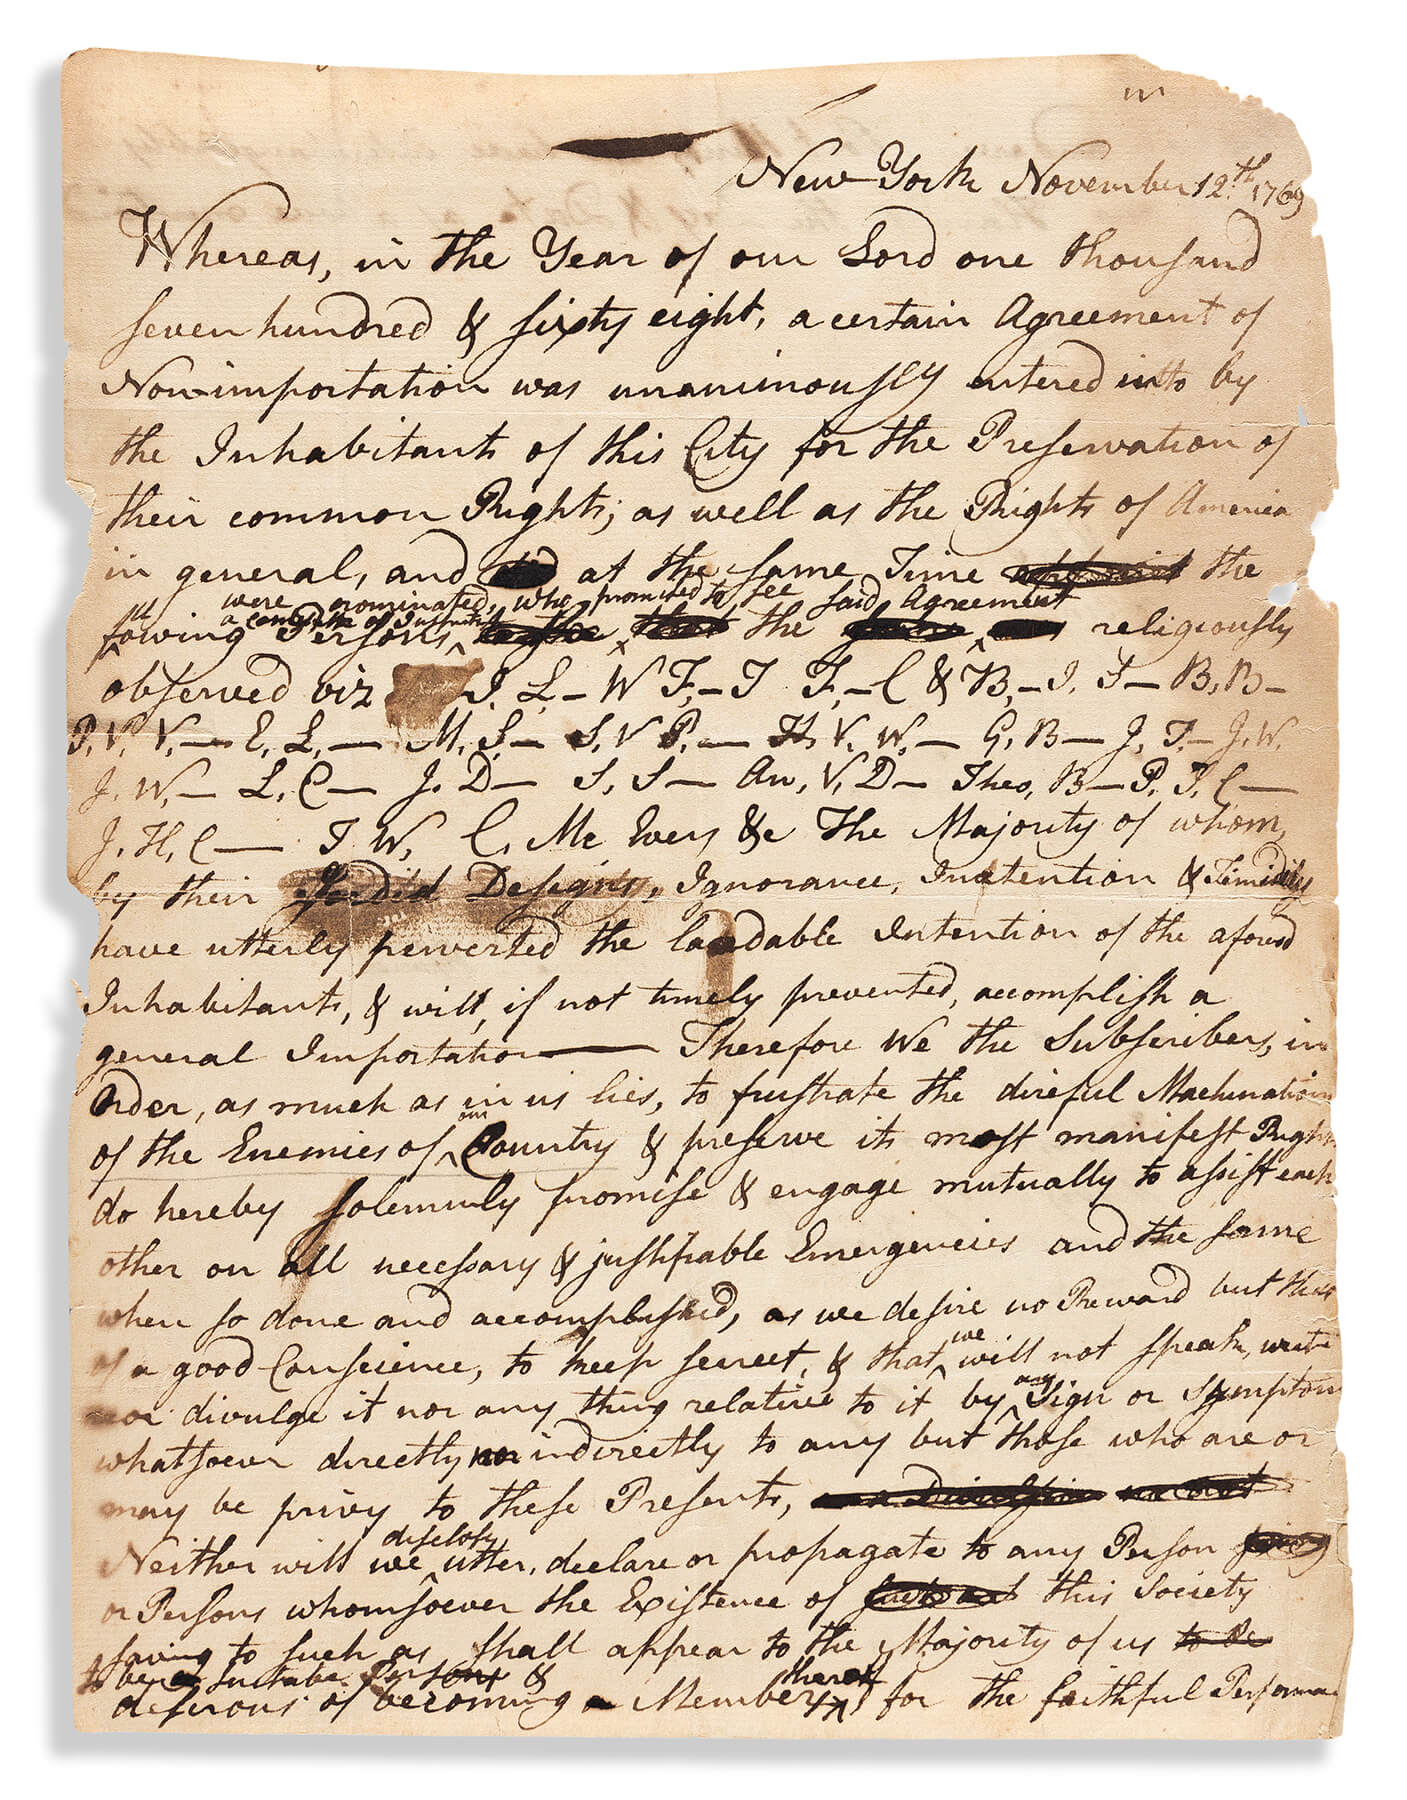 New York November 12.th 1769
Whereas, in the Year of our Lord one thousand
seven hundred & sixty eight, a certain Agreement of
Nonimportation was unanimously entered into by
the Inhabitants of this City for the Preservation of
their common Rights; as well as the Rights of America
in general, and at the same Time the
were nominated, who promised to see said Agreement
a Committee of Inspection
Persons, the religiously
observed viz J. L. – W F, – T F, – C & B, – I. F – B, B –
P. V. V. — E. L. — M. S – S. V P. — H V. W. – G. B – J. T. – J. W.
J. W, – L. C – J. D – S. S – An, V. D – Theo, B – P. T. C –
J. H. C — T W. C. Mc Evers &c The Majority of whom,
by their Sordid Designs, Ignorance, Inattention & Timidity
have utterly perverted the laudable Intention of the aforesd
Inhabitants, & will, if not timely prevented, accomplish a
general Importation — Therefore We the Subscribers, in
Order, as much as in us lies, to frustrate the direful Machinations
our
of the Enemies of Country & preserve its most manifest Rights
do hereby solemnly promise & engage mutually to assist each
other on all necessary & justifiable Emergencies and the same
when so done and accomplished, as we desire no Reward but that
we
of a good Conscience, to keep secret, & that will not speak, write
any
nor divulge it nor any thing relative to it by Sign or Symptom
whatsoever directly nor indirectly to any but those who are or
may be privy to these Presents,
disclose
Neither will we utter, declare or propagate to any Person
or Persons whomsoever the Existence of this Society
saving to such as shall appear to the Majority of us to be
to be Suitabe Persons &
thereof
desirous of becoming a Member, for the faithful Performance